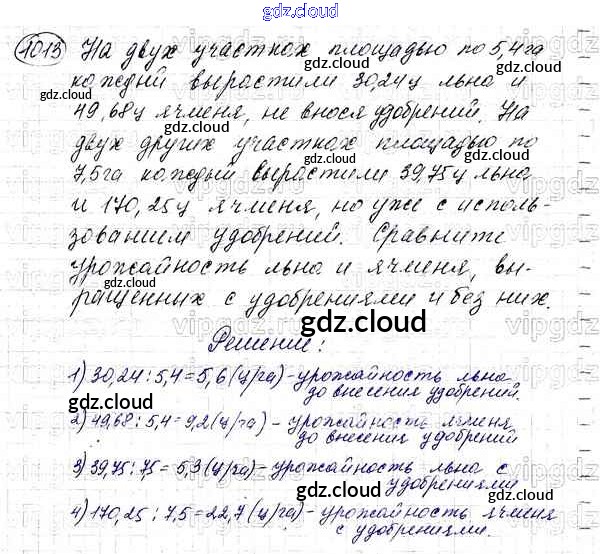 gdz.cloud
1013 На двух участках площадью по 5,4 га
каждый вырастили 30,24 ц льна и
gdz.cloud
49,68 ц ячменя, не внося удобрений. На
двух других участках площадью по
7,5 га каждый вырастили 39,75 ц льна
и 170,25 ц ячменя, но уже с исполь-
зованием удобрений. Сравните
урожайность льна и ячменя, вы-
ращенных с удобрениями и без них.
gdz.cloud
Решение:
1) 30,24 : 5,4 = 5,6 (ц/га) - урожайность льна
до внесения удобрений.
gdz.cloud
2) 49,68 : 5,4 = 9,2 (ц/га) - урожайность ячменя
до внесения удобрений
gdz.cloud
3) 39,75 : 75 = 5,3 (ц/га) - урожайность льна с
удобрениями
gdz.cloud
4) 170,25 : 7,5 = 22,7 (ц/га) - урожайность ячменя
с удобрениями.
gdz.cloud